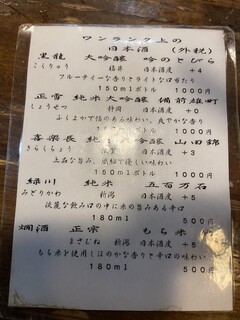 ワンランク上の
日本酒 (外税)
黒龍 大吟醸 吟のとびら
こくりゅう 福井 日本酒度 +4
フルーティーな香りとライトな口当たり
150mlボトル 1000円
正雪 純米大吟醸 備前雄町
しょうせつ 静岡 日本酒度
ふくよかで恬のある味わい、爽やかな香り
150mlボトル 1000円
喜楽長 純 吟醸 山田錦
きらくちょう 日本酒度
上品な旨み、繊細で優しい味わい
150mlボトル 1000円
緑川 純米 五百万石
みどりかわ 新潟 日本酒度 +5
淡麗な飲み口の中に米の旨みある辛口
180ml 500円
燗酒 正宗 もち米
まさむね 新潟 日本酒度 +5
もち米を使用しほのかな香りと辛口の味わい
180ml 500円